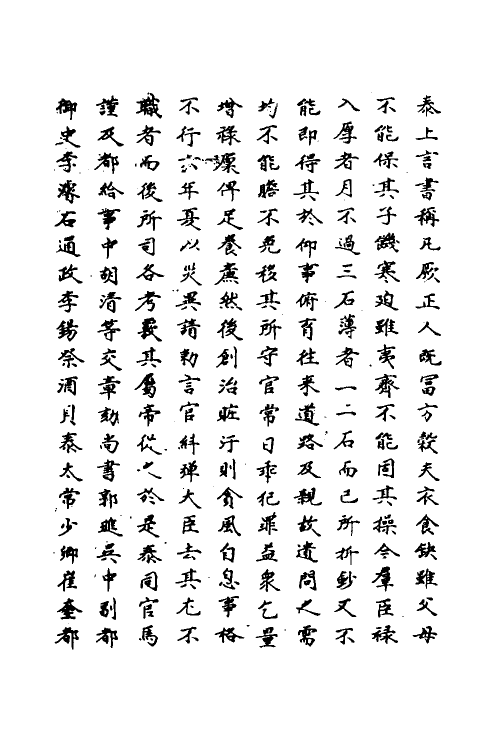 泰上言書稱凡厥正人既富方穀夫衣食缺雖父母
不能保其子饑寒廹雖夷齊不能固其操今羣臣祿
入厚者月不過三石薄者一二石而已所折鈔又不
能即得其於仰事俯育往来道路及親故遺問之需
均不能贍不免移其所守官常日乖犯罪益衆乞量
增祿廪俾足養廉然後創治贓汙則貪風自息事格
不行六年夏以災異請勑言官糾彈大臣去其尤不
職者而後所司各考覈其屬帝從之於是泰同官馬
謹及都給事中胡清等交章劾尚書郭璡吳中副都
御史李濬右通政李錫柰酒貝泰太常少卿崔奎都